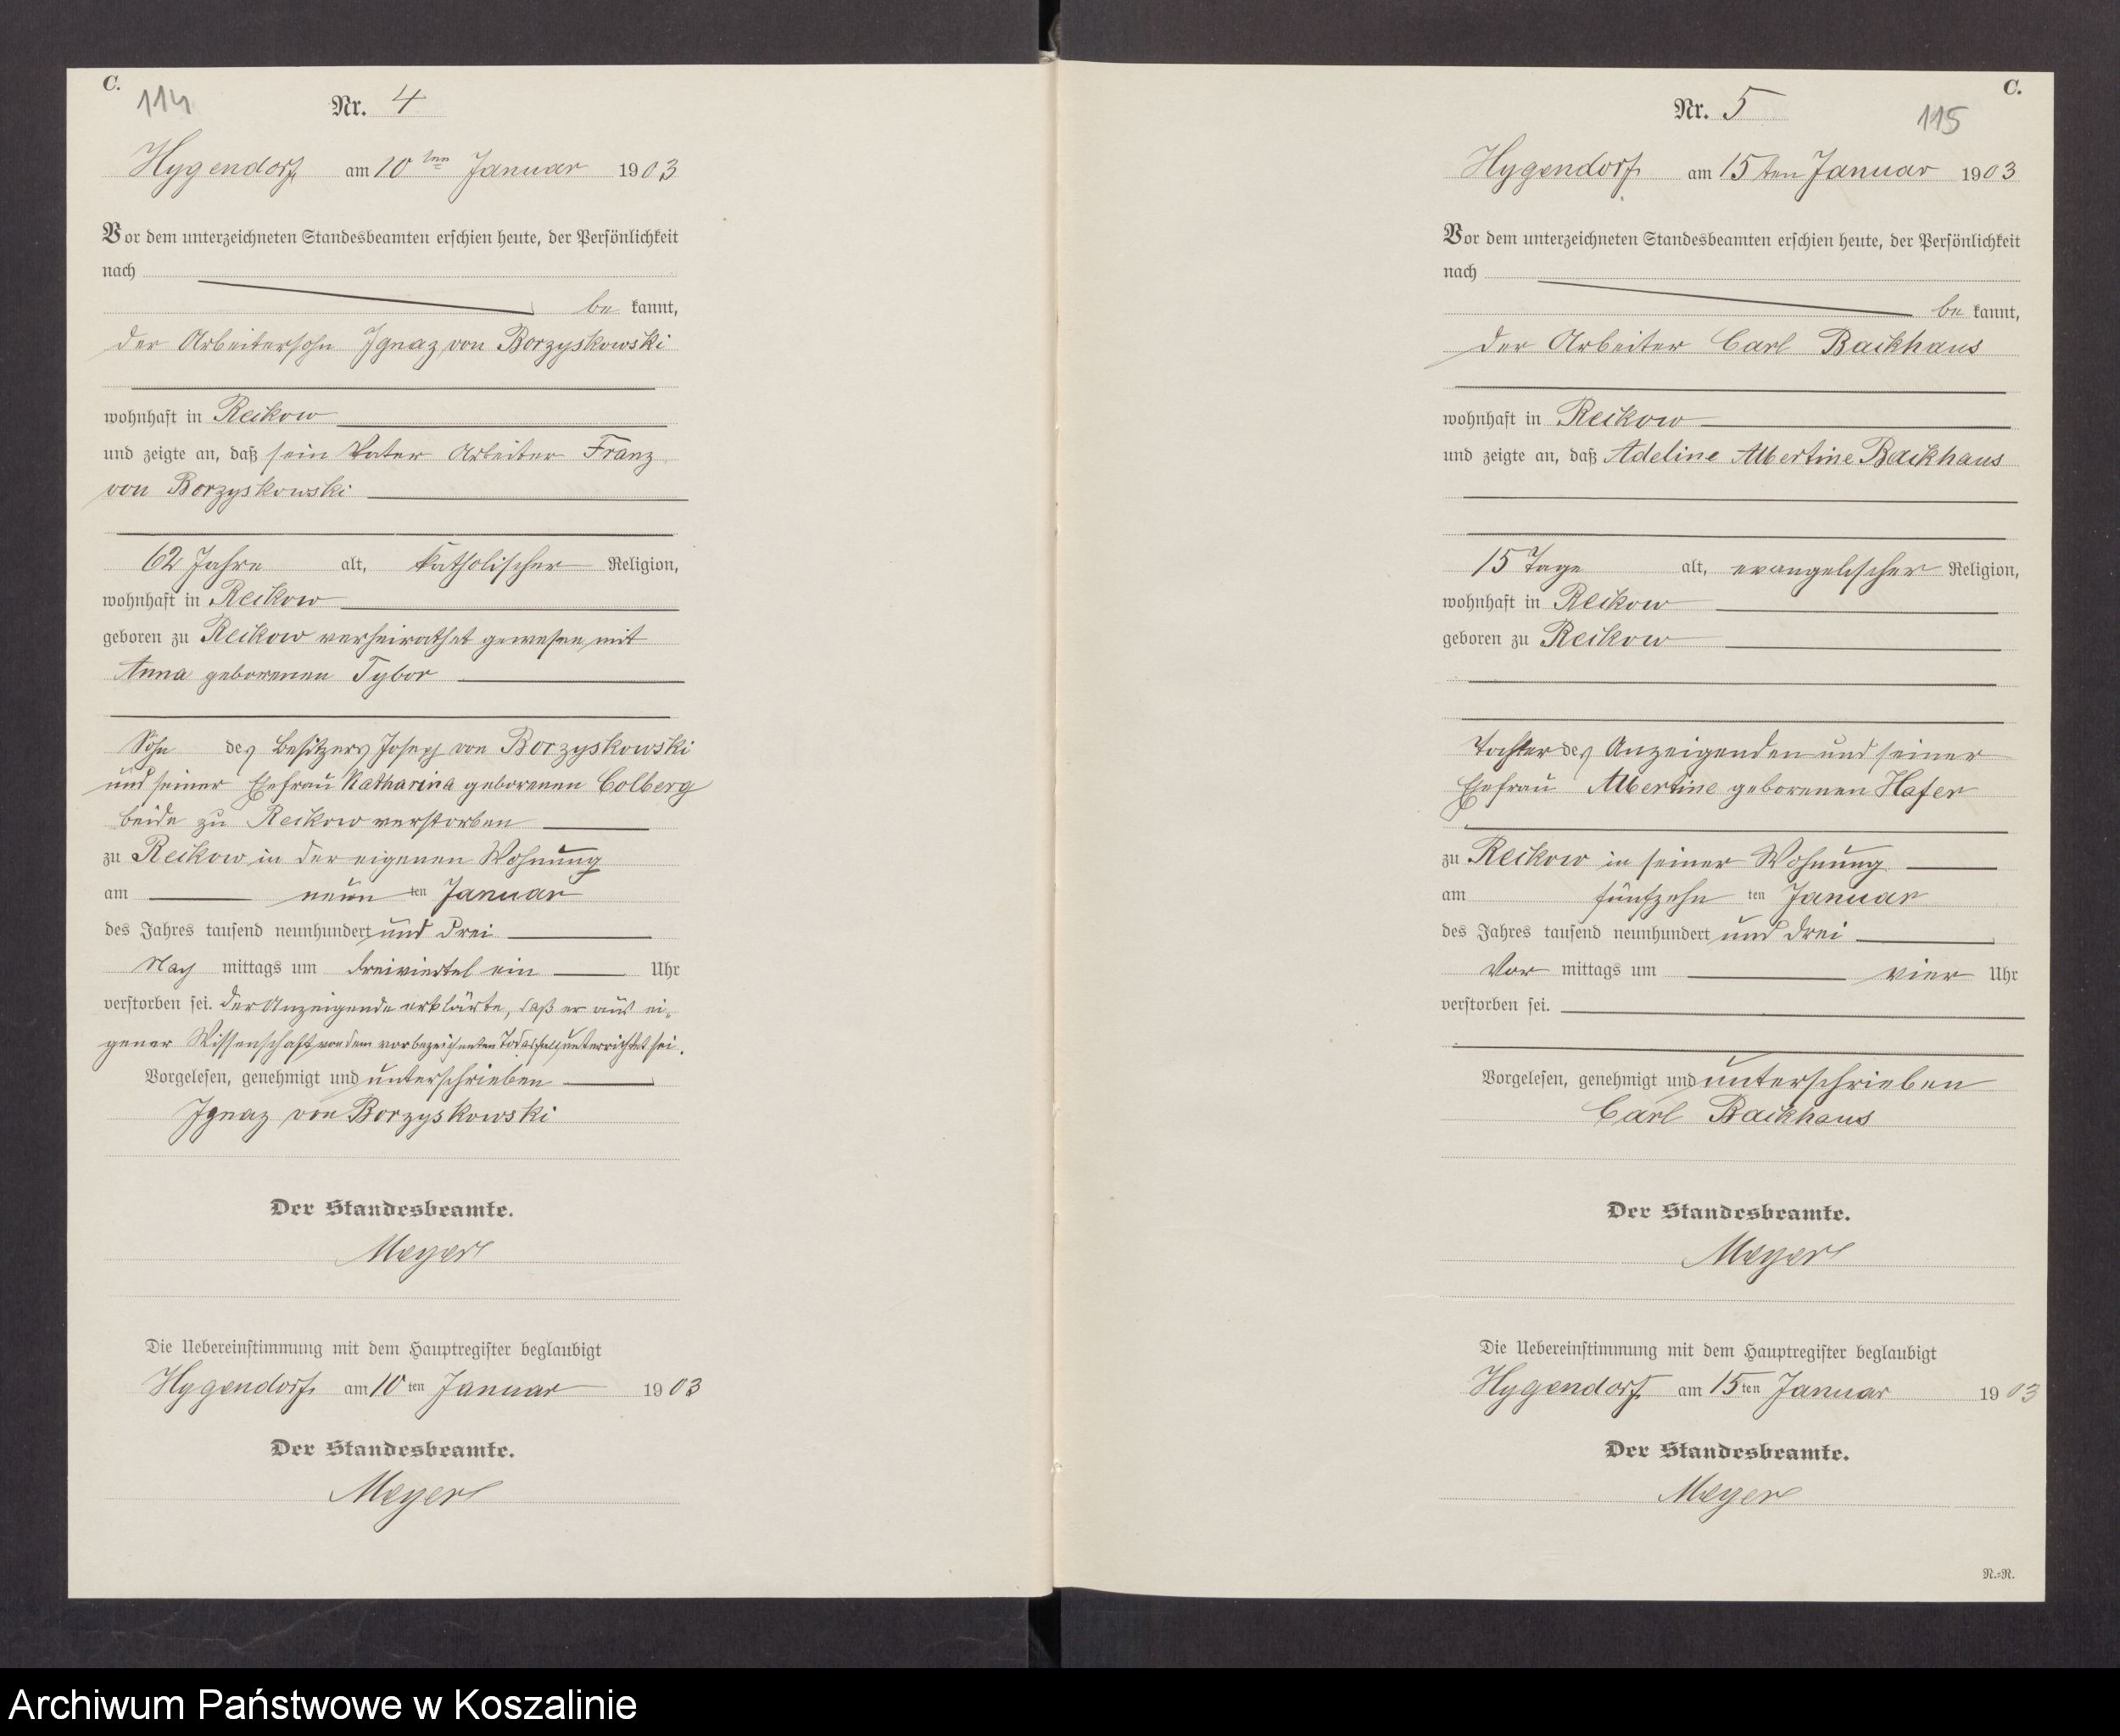 C.
114
Nr. 4
Hygendorf am 10ten Januar 1903
Vor dem unterzeichneten Standesbeamten erschien heute, der Persönlichkeit
nach
be kannt,
der Arbeitersohn Ignaz von Borzyskowski
wohnhaft in Reikow
und zeigte an, daß sein Vater Arbeiter Franz
von Borzyskowski
62 Jahre alt, katholischer Religion,
wohnhaft in Reikow
geboren zu Reikow verheirathet gewesen mit
Anna geborenen Tybor
Sohn des Besitzers Joseph von Borzyskowski
und seiner Ehefrau Katharina geborenen Colberg
beide zu Reikow verstorben
zu Reikow in der eigenen Wohnung
am neun ten Januar
des Jahres tausend neunhundert und drei
Nach mittags um dreiviertel ein Uhr
verstorben sei. der Anzeigende erklärte, daß er aus ei-
gener Wissenschaft von dem vorbezeichneten Todesfall unterrichtet sei.
Vorgelesen, genehmigt und unterschrieben
Ignaz von Borzyskowski
Der Standesbeamte.
Meyer
Die Uebereinstimmung mit dem Hauptregister beglaubigt
Hygendorf am 10ten Januar 1903
Der Standesbeamte.
Meyer
C.
Nr. 5
115
Hygendorf am 15ten Januar 1903
Vor dem unterzeichneten Standesbeamten erschien heute, der Persönlichkeit
nach
be kannt,
der Arbeiter Carl Backhaus
wohnhaft in Reikow
und zeigte an, daß Adeline Albertine Backhaus
15 Tage alt, evangelischer Religion,
wohnhaft in Reikow
geboren zu Reikow
Tochter des Anzeigenden und seiner
Ehefrau Albertine geborenen Hafer
zu Reikow in seiner Wohnung
am fünfzehn ten Januar
des Jahres tausend neunhundert und drei
Vor mittags um vier Uhr
verstorben sei.
Vorgelesen, genehmigt und unterschrieben
Carl Backhaus
Der Standesbeamte.
Meyer
Die Uebereinstimmung mit dem Hauptregister beglaubigt
Hygendorf am 15ten Januar 1903
Der Standesbeamte.
Meyer
N.=R.
Archiwum Państwowe w Koszalinie